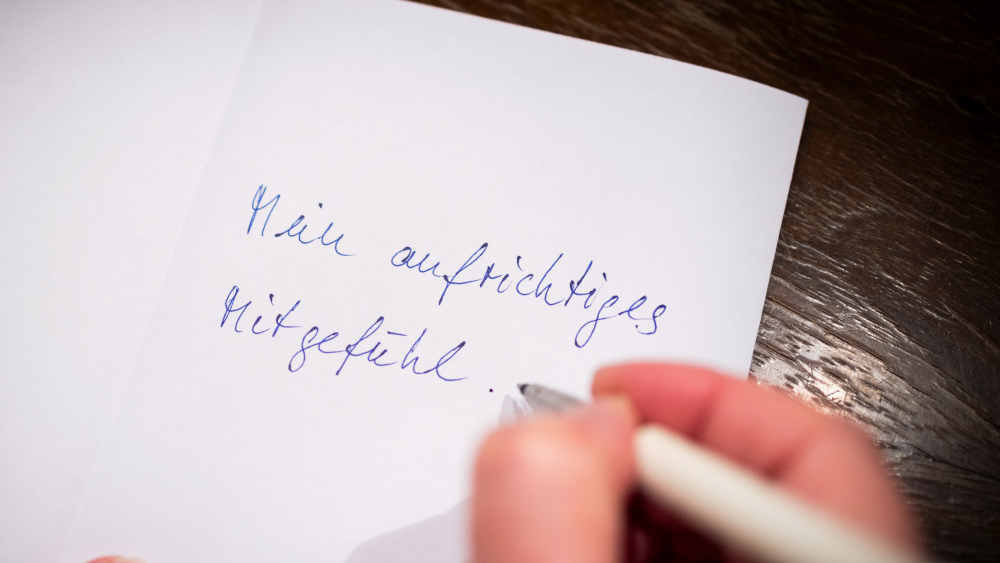 Mein aufrichtiges
Mitgefühl.